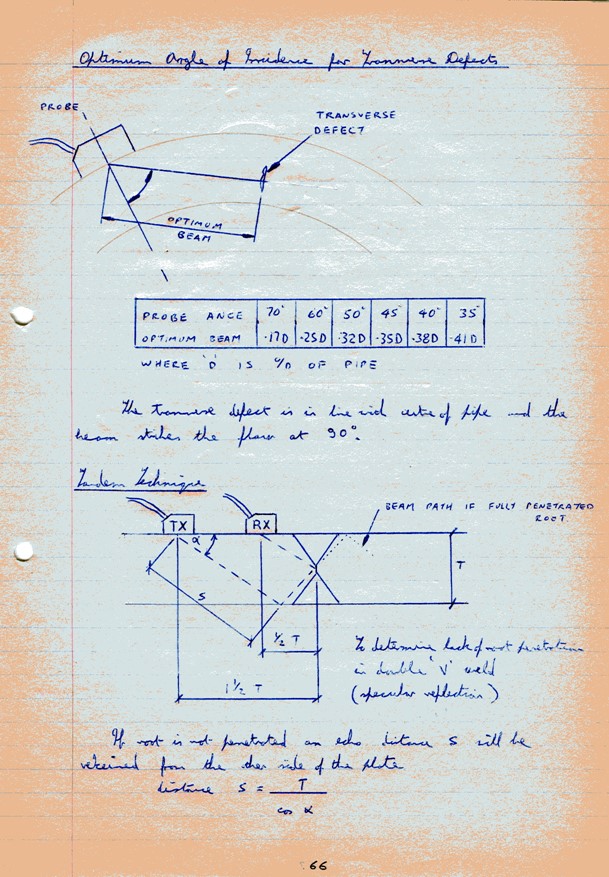 Optimum Angle of Incidence for Transverse Defects
PROBE
TRANSVERSE
DEFECT
OPTIMUM
BEAM
PROBE ANGE 70° 60° 50° 45° 40° 35°
OPTIMUM BEAM ·17D ·25D ·32D ·35D ·38D ·41D
WHERE 'D' IS O/D OF PIPE
The transverse defect is in line with centre of pipe and the
beam strikes the flaw at 90°.
Tandem Technique
BEAM PATH IF FULLY PENETRATED
ROOT
TX
RX
α
S
T
1/2 T
1 1/2 T
To determine lack of root penetration
in double 'V' weld
(specular reflection)
If root is not penetrated an echo distance S will be
retained from the ther side of the plate
distance S = T
cos α
66